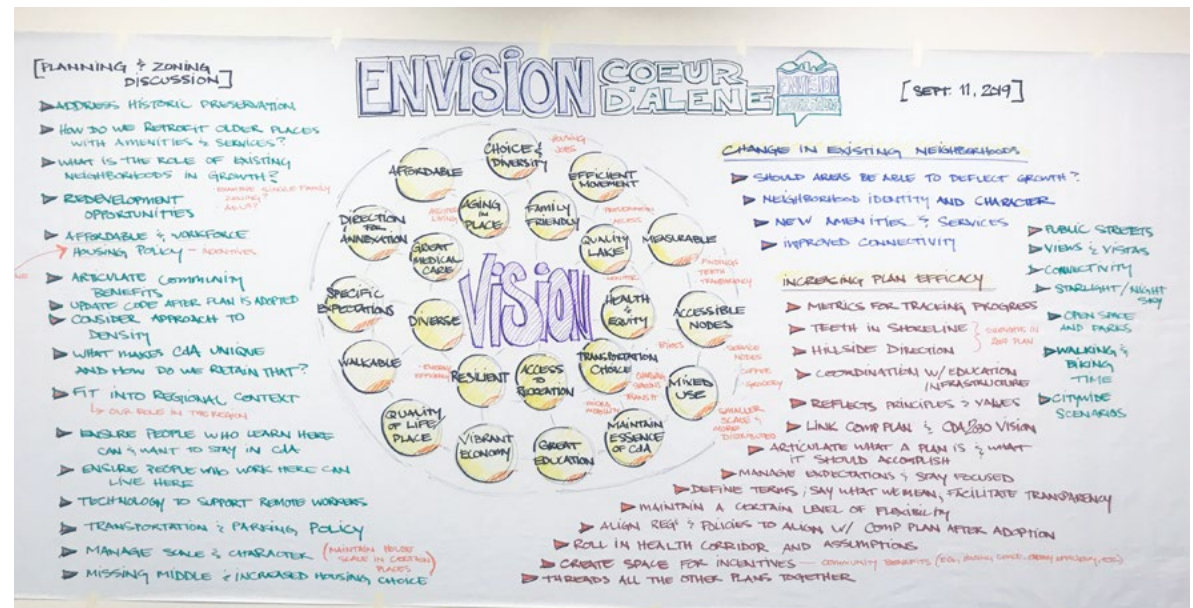 [PLANNING & ZONING
DISCUSSION]
ADDRESS HISTORIC PRESERVATION
HOW DO WE RETROFIT OLDER PLACES
WITH AMENITIES & SERVICES?
WHAT IS THE ROLE OF EXISTING
NEIGHBORHOODS IN GROWTH?
- EXAMINE SINGLE FAMILY
ZONING?
REDEVELOPMENT
OPPORTUNITIES
AFFORDABLE & WORKFORCE
HOUSING POLICY - INCENTIVES
ARTICULATE COMMUNITY
BENEFITS
UPDATE CODE AFTER PLAN IS ADOPTED
CONSIDER APPROACH TO
DENSITY
WHAT MAKES CdA UNIQUE
AND HOW DO WE RETAIN THAT?
FIT INTO REGIONAL CONTEXT
OUR ROLE IN THE REGION
ENSURE PEOPLE WHO LEARN HERE
CAN & WANT TO STAY IN CdA
ENSURE PEOPLE WHO WORK HERE CAN
LIVE HERE
TECHNOLOGY TO SUPPORT REMOTE WORKERS
TRANSPORTATION & PARKING POLICY
MANAGE SCALE & CHARACTER (MAINTAIN HOUSE
SCALE IN CERTAIN
PLACES)
MISSING MIDDLE & INCREASED HOUSING CHOICE
ENVISION COEUR
D'ALENE
ENVISION
[SEPT. 11, 2019]
CHOICE &
DIVERSITY
HOUSING
JOBS
AFFORDABLE
EFFICIENT
MOVEMENT
AGING
IN
PLACE
FAMILY
FRIENDLY
DIRECTION
FOR
ANNEXATION
ASSISTED
LIVING
GREAT
MEDICAL
CARE
QUALITY
LAKE
MEASURABLE
SPECIFIC
EXPECTATIONS
VISION
TEETH
TRANSPARENCY
DIVERSE
HEALTH
&
EQUITY
ACCESSIBLE
NODES
WALKABLE
- ENERGY
EFFICIENCY
RESILIENT
ACCESS
TO
RECREATION
TRANSPORTATION
CHOICE
BIKES
TRANSIT
SERVICE
NODES
COFFEE
GROCERY
MIXED
USE
QUALITY
OF LIFE/
PLACE
VIBRANT
ECONOMY
GREAT
EDUCATION
MAINTAIN
ESSENCE
OF CdA
SMALLER
SCALE &
MORE
DISTRIBUTED
CHANGE IN EXISTING NEIGHBORHOODS
SHOULD AREAS BE ABLE TO DEFLECT GROWTH?
NEIGHBORHOOD IDENTITY AND CHARACTER
NEW AMENITIES & SERVICES
IMPROVED CONNECTIVITY
INCREASING PLAN EFFICACY
METRICS FOR TRACKING PROGRESS
TEETH IN SHORELINE
HILLSIDE DIRECTION
COORDINATION W/ EDUCATION
INFRASTRUCTURE
REFLECTS PRINCIPLES & VALUES
LINK COMP PLAN & CDA 2030 VISION
ARTICULATE WHAT A PLAN IS & WHAT
IT SHOULD ACCOMPLISH
MANAGE EXPECTATIONS & STAY FOCUSED
DEFINE TERMS; SAY WHAT WE MEAN, FACILITATE TRANSPARENCY
MAINTAIN A CERTAIN LEVEL OF FLEXIBILITY
ALIGN REGS & POLICIES TO ALIGN W/ COMP PLAN AFTER ADOPTION
ROLL IN HEALTH CORRIDOR AND ASSUMPTIONS
CREATE SPACE FOR INCENTIVES - COMMUNITY BENEFITS
THREADS ALL THE OTHER PLANS TOGETHER
PUBLIC STREETS
VIEWS & VISTAS
CONNECTIVITY
STARLIGHT/NIGHT
SKY
OPEN SPACE
AND PARKS
WALKING &
BIKING
TIME
CITYWIDE
SCENARIOS